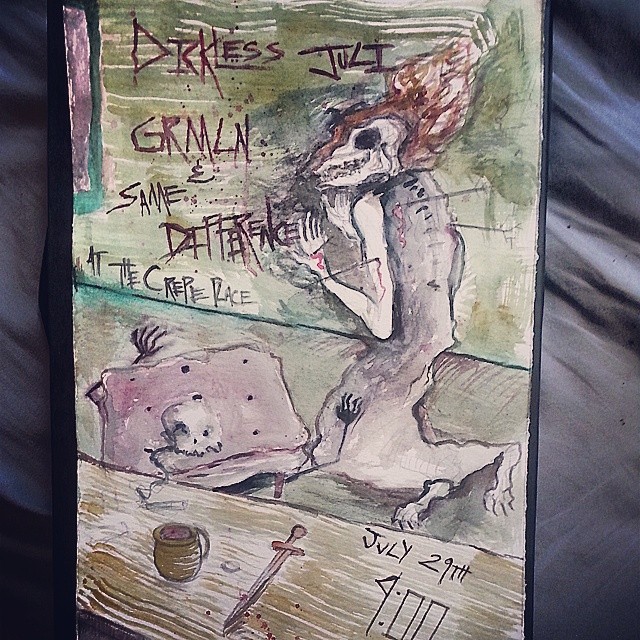 DICKLESS JULI
GRMLN
&
SAME
DIFFERENCE
AT THE CREPE PLACE
JULY 29TH
9:00